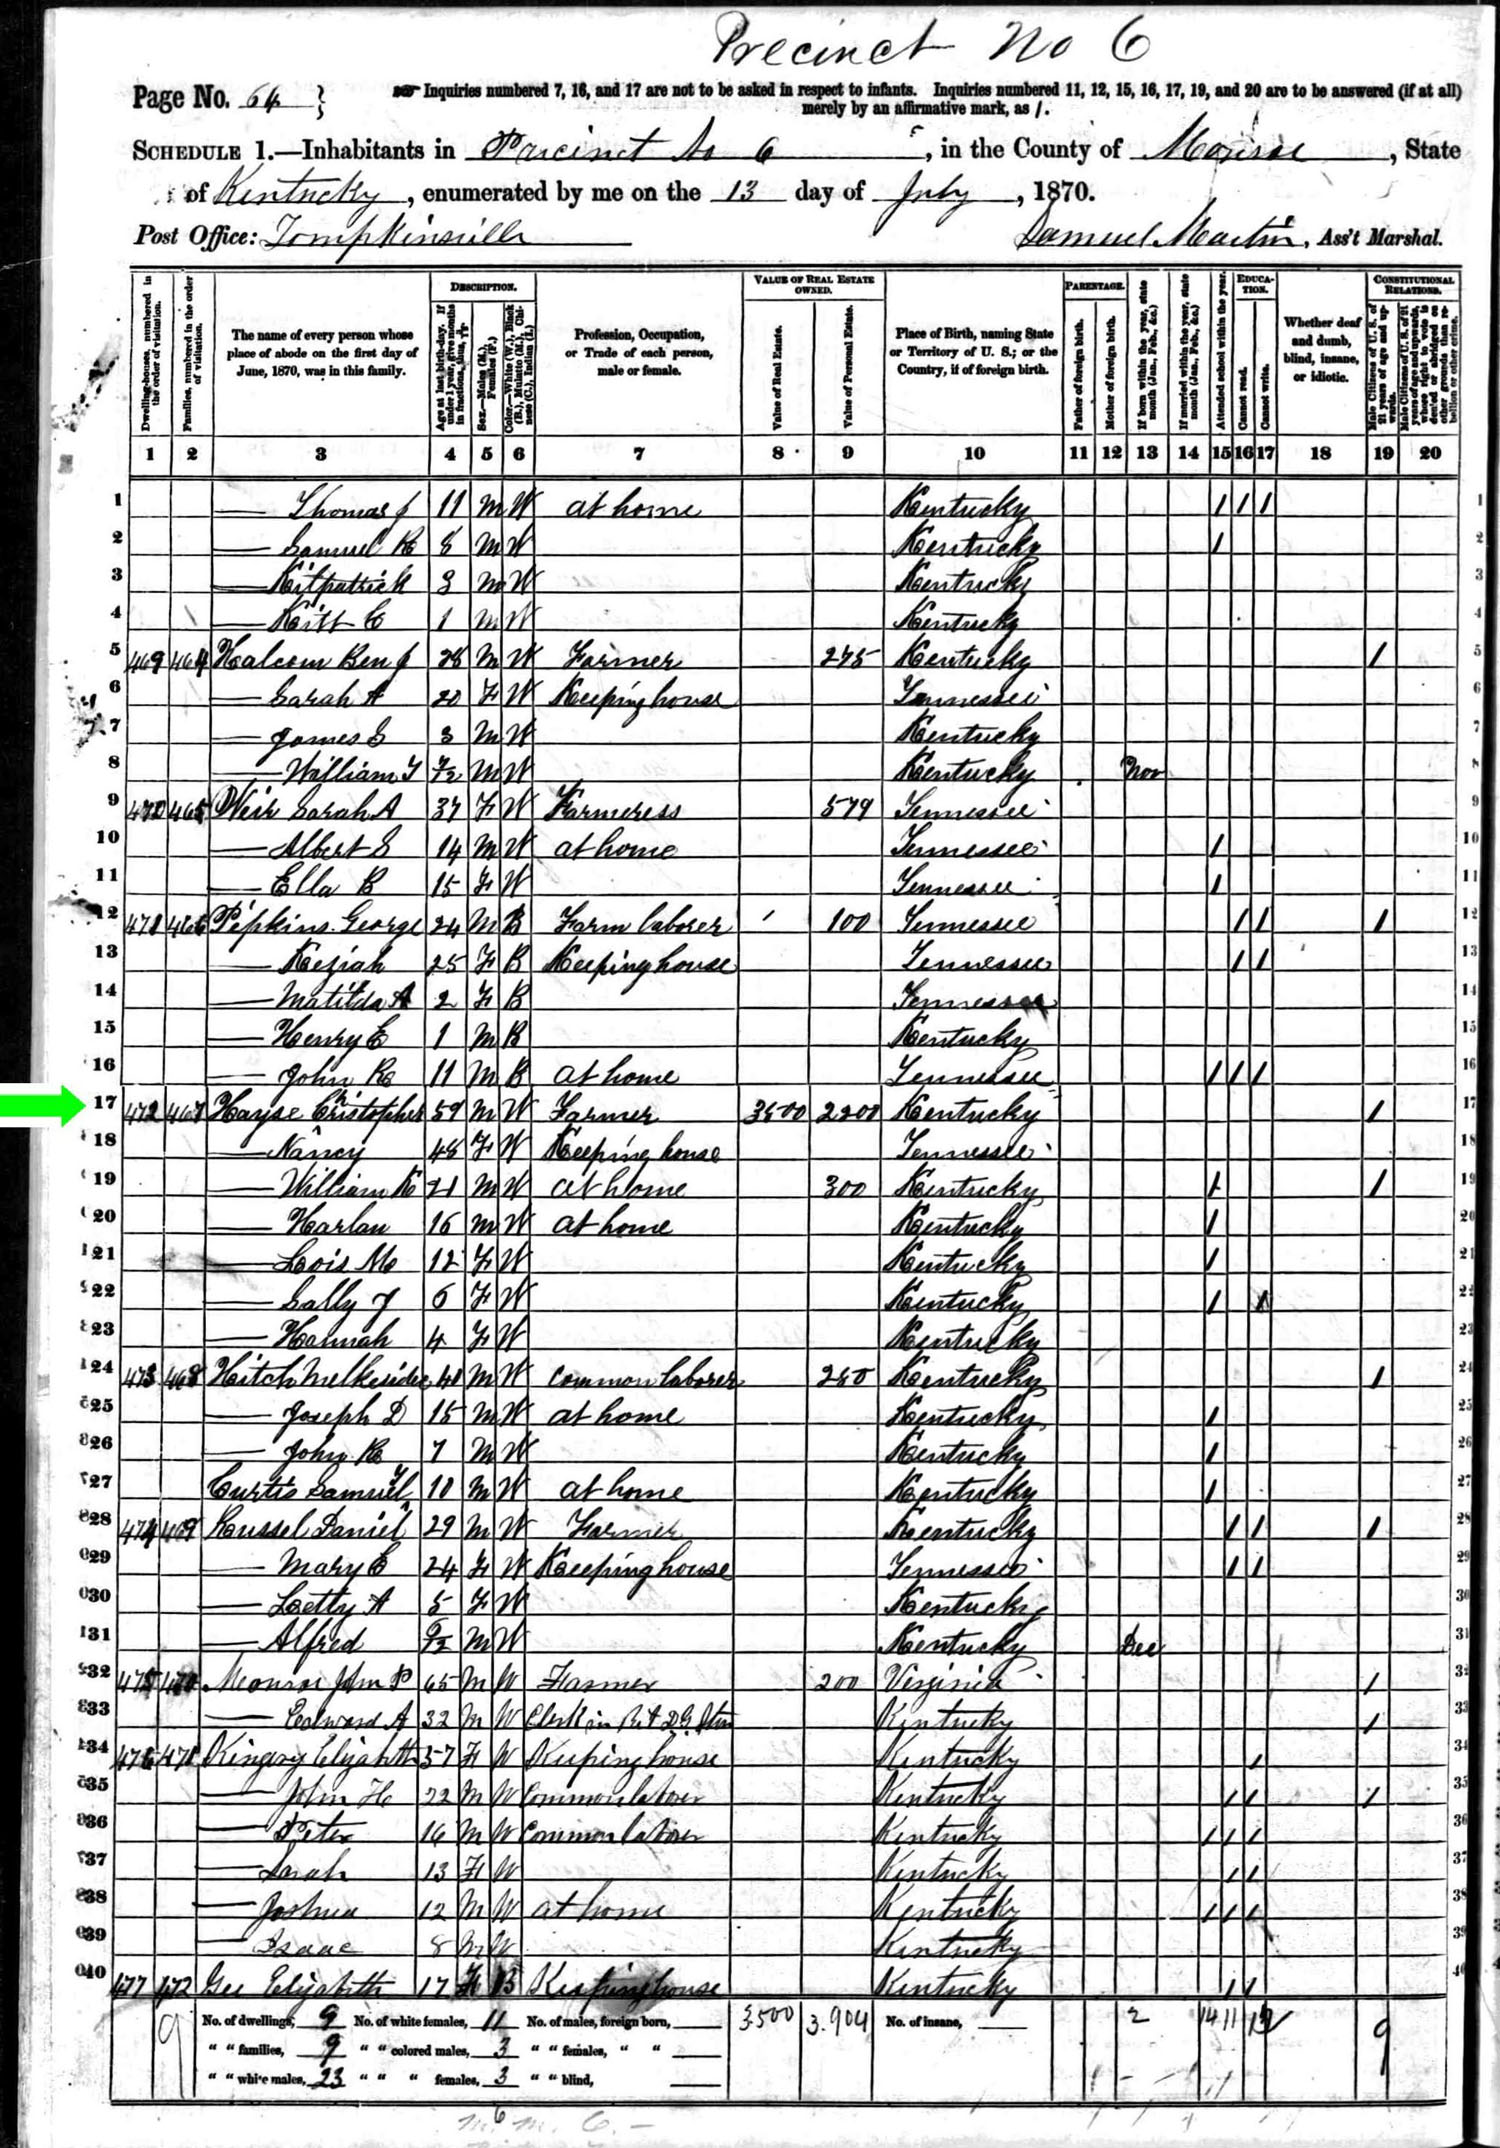 Precinct No 6
Page No. 64 }
Inquiries numbered 7, 16, and 17 are not to be asked in respect to infants. Inquiries numbered 11, 12, 15, 16, 17, 19, and 20 are to be answered (if at all)
merely by an affirmative mark, as /.
SCHEDULE 1.—Inhabitants in Precinct No 6, in the County of Monroe, State
of Kentucky, enumerated by me on the 13 day of July, 1870.
Post Office: Tompkinsville
Samuel Martin, Ass't Marshal.
DESCRIPTION.
VALUE OF REAL ESTATE OWNED.
PARENTAGE.
EDUCATION.
CONSTITUTIONAL RELATIONS.
Dwelling-houses, numbered in the order of visitation.
Families, numbered in the order of visitation.
The name of every person whose place of abode on the first day of June, 1870, was in this family.
Age at last birth-day. If under 1 year, give months in fractions, thus, 3/12
Sex.—Males (M.), Females (F.)
Color.—White (W.), Black (B.), Mulatto (M.), Chinese (C.), Indian (I.)
Profession, Occupation, or Trade of each person, male or female.
Value of Real Estate.
Value of Personal Estate.
Place of Birth, naming State or Territory of U. S.; or the Country, if of foreign birth.
Father of foreign birth.
Mother of foreign birth.
If born within the year, state month (Jan., Feb., &c.)
If married within the year, state month (Jan., Feb., &c.)
Attended school within the year.
Cannot read.
Cannot write.
Whether deaf and dumb, blind, insane, or idiotic.
Male Citizens of U. S. of 21 years of age and upwards.
Male Citizens of U. S. of 21 years of age and upwards, whose right to vote is denied or abridged on other grounds than rebellion or other crime.
1 2 3 4 5 6 7 8 9 10 11 12 13 14 15 16 17 18 19 20
1 — Thomas J 11 M W at home Kentucky / / / 1
2 — Samuel R 8 M W Kentucky / 2
3 — Kilpatrick 3 M W Kentucky 3
4 — Kitt C 1 M W Kentucky 4
5 469 464 Halcom Ben J 28 M W Farmer 275 Kentucky / 5
6 — Sarah A 20 F W Keeping house Tennessee 6
7 — James S 3 M W Kentucky 7
8 — William T 7/12 M W Kentucky Nov 8
9 470 465 Weir Sarah A 37 F W Farmeress 579 Tennessee 9
10 — Albert S 14 M W at home Tennessee / 10
11 — Ella B 15 F W Tennessee / 11
12 471 466 Pipkins George 24 M B Farm laborer 100 Tennessee / / / 12
13 — Keziah 25 F B Keeping house Tennessee / / 13
14 — Matilda A 2 F B Tennessee 14
15 — Henry C 1 M B Kentucky 15
16 — John R 11 M B at home Tennessee / / / 16
17 472 467 Hayse Christopher 59 M W Farmer 3500 2200 Kentucky / 17
18 — Nancy 48 F W Keeping house Tennessee 18
19 — William K 21 M W at home 300 Kentucky / / 19
20 — Harlan 16 M W at home Kentucky / 20
21 — Lois M 12 F W Kentucky / 21
22 — Sally J 6 F W Kentucky / / 22
23 — Hannah 4 F W Kentucky 23
24 473 468 Hitch 41 M W common laborer 250 Kentucky / 24
25 — Joseph D 15 M W at home Kentucky / 25
26 — John R 7 M W Kentucky / 26
27 Curtis Samuel Y 10 M W at home Kentucky / 27
28 474 469 Russel Daniel 29 M W Farmer Kentucky / / / 28
29 — Mary E 24 F W Keeping house Tennessee / / 29
30 — Letty A 5 F W Kentucky 30
31 — Alfred 6/12 M W Kentucky Dec 31
32 475 470 Monroe John P 65 M W Farmer 200 Virginia / 32
33 — Edward A 32 M W Clerk in Ret D.G. Store Kentucky / 33
34 476 471 Kingery Elizabeth 57 F W Keeping house Kentucky / 34
35 — John H 22 M W Common laborer Kentucky / / / 35
36 — Peter 16 M W Common laborer Kentucky / / / 36
37 — Sarah 13 F W Kentucky / / 37
38 — Joshua 12 M W at home Kentucky / / / 38
39 — Isaac 8 M W Kentucky 39
40 477 472 Gee Elizabeth 17 F B Keeping house Kentucky / / 40
9 No. of dwellings, 9 No. of white females, 11 No. of males, foreign born, 3500 3.904 No. of insane, 2 14 11 9
" " families, 9 " " colored males, 3 " " females, " "
" " white males, 23 " " " females, 3 " " blind,
6